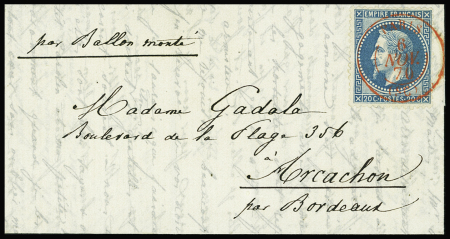 par Ballon monté
EMPIRE FRANÇAIS
6
NOV
70
20C POSTES 20C
Madame Gadala
Boulevard de la Plage 356
à
Arcachon
par Bordeaux